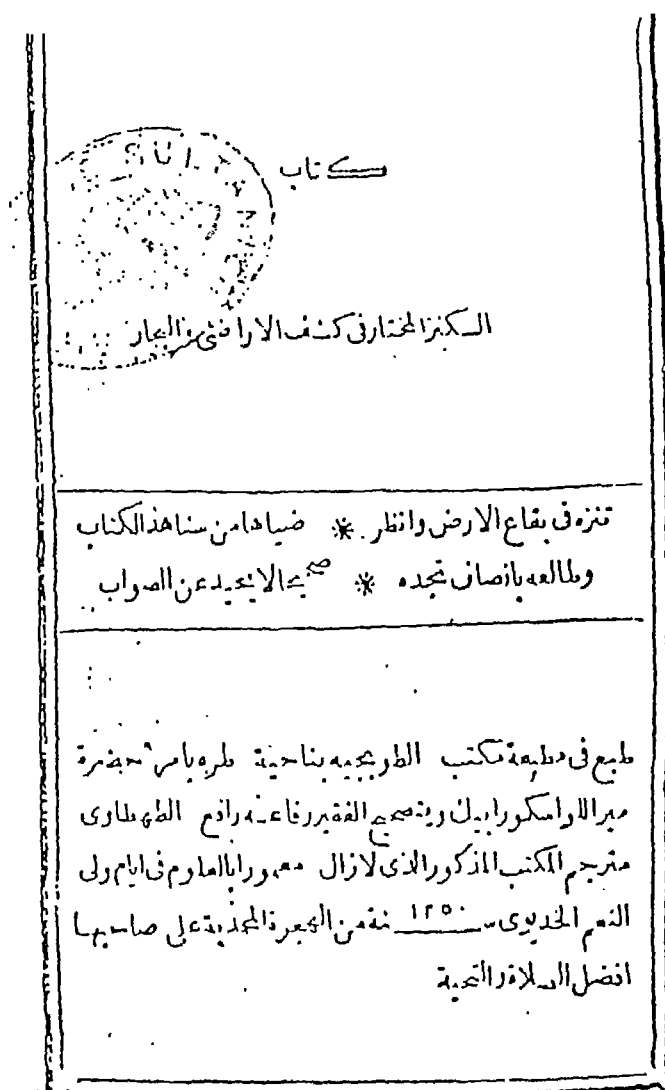 SULTAN
كتاب
الكنز المختار فى كشف الاراضى والبحار
تنزه فى بقاع الارض وانظر * ضياها من سنا هذ الكتاب
وطالعه بانصاف تجده * صحيحا لا يحيد عن الصواب
طبع فى مطبعة مكتب الطوبجيه بناحية طره بامر حضرة
مير اللوا سكورا بيك وبتصحيح الفقير رفاعه رافع الطهطاوى
مترجم المكتب المذكور الذى لازال معمورا بالعلوم فى ايام ولى
النعم الخديوى سنة ١٢٥٠ من الهجرة المحمدية على صاحبها
افضل الصلاة والتحية